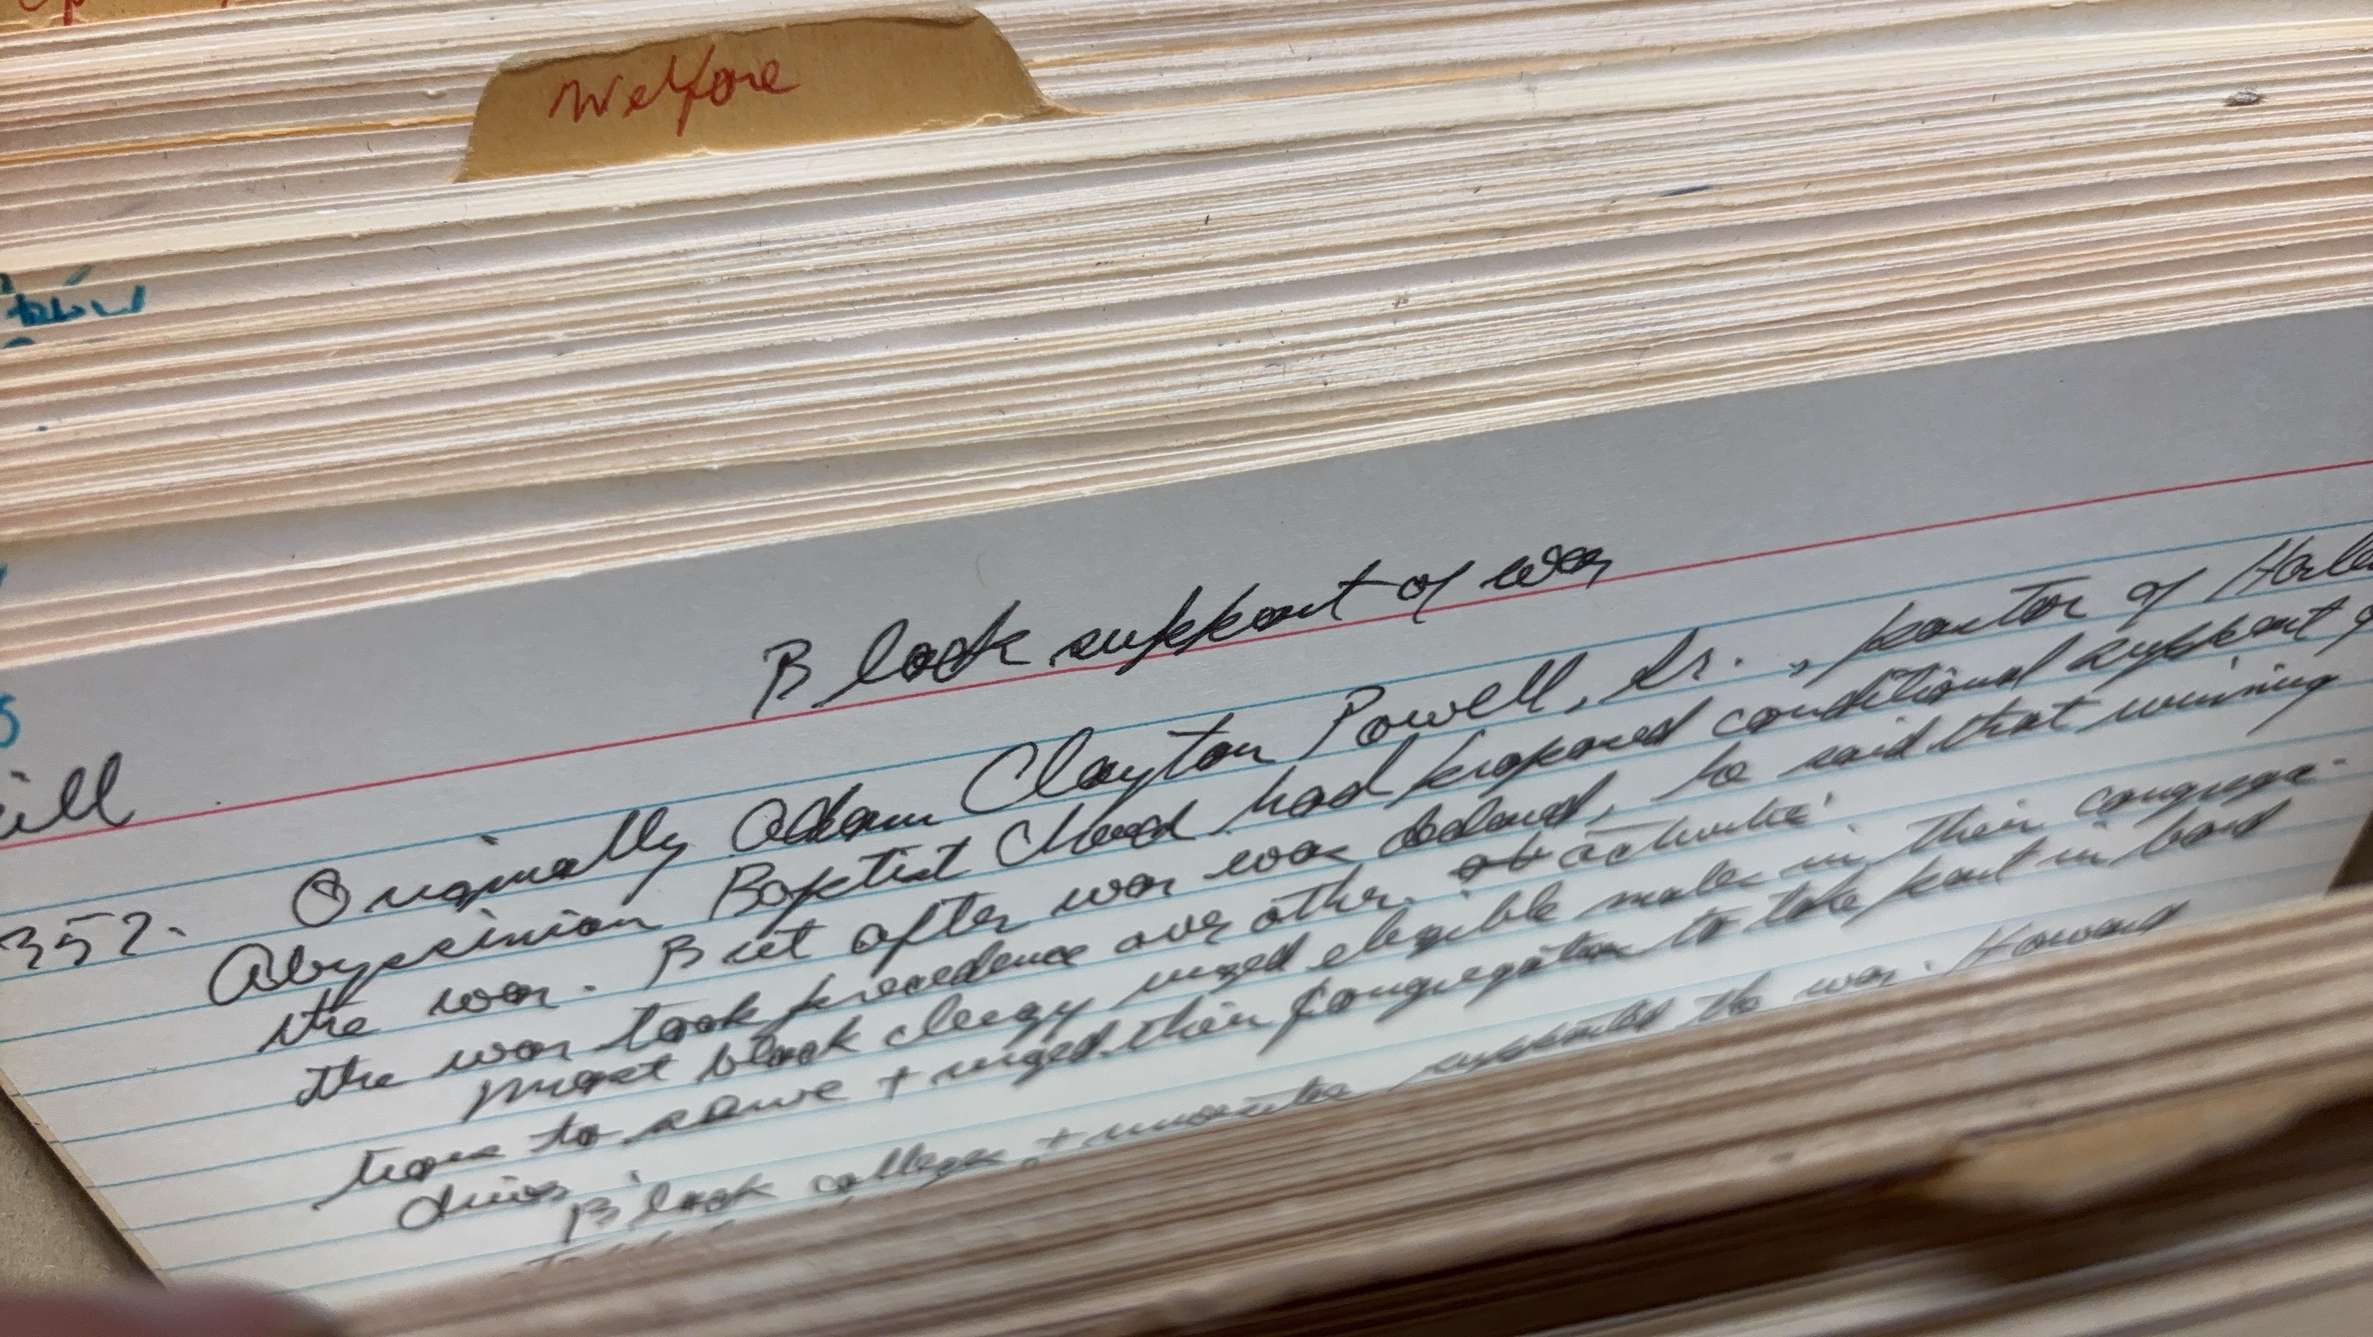 Welfare
Black support of war
ill
352. Originally Adam Clayton Powell, Sr., pastor of Harle
Abyssinian Baptist Church had proposed conditional support of
the war. But after war was declared, he said that winning
the war took precedence over other activities.
Most black clergy urged eligible males in their congrega-
tions to serve + urged their congregation to take part in bond
drives.
Black colleges + universities supported the war. Howard